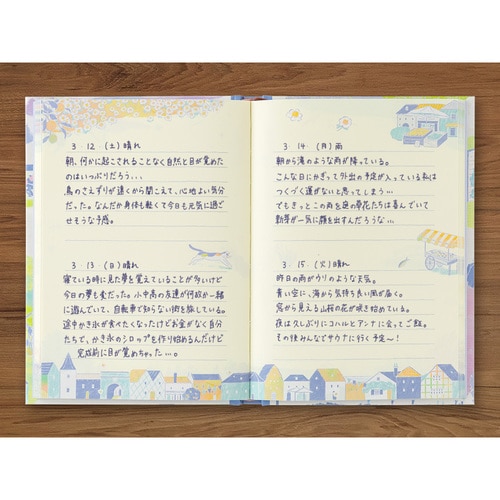 3. 12 (土)晴れ
朝、何かに起こされることなく自然と目が覚めた
のはいつぶりだろう...
鳥のさえずりが遠くから聞こえて、心地よい気分
だった。なんだか身体も軽くて今日も元気に過ご
せそうな予感。
3. 13 (日)晴れ
寝ている時に見た夢を覚えていることが多いけど
今日の夢も変だった。小中高の友達が何故か一緒
に遊んでいて、自転車で知らない街を旅している。
途中かき氷が食べたくなったけどお金がなく自分
たちで、かき氷のシロップを作り始めるんだけど
完成前に目が覚めちゃった...。
3. 14. (月)雨
朝から滝のような雨が降っている。
こんな日にかぎって外出の予定が入っている私は
つくづく運がないと思ってしまう...
でもきっとこの雨を庭の草花たちは喜んでいて
新芽が一気に顔を出すんだろうな...
3. 15. (火)晴れ
昨日の雨がウソのような天気。
青い空に、海から気持ち良い風が届く。
窓から見える山桜の花が咲き始めている。
夜は久しぶりにコハルとアンナに会ってご飯。
その後みんなでサウナに行く予定〜!